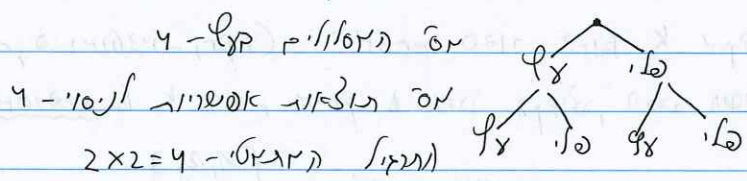 מס' המסלולים בעץ - 4
מס' תוצאות אפשריות לניסוי - 4
התרגיל המתמטי - 2×2=4
עץ פלי
עץ פלי עץ פלי